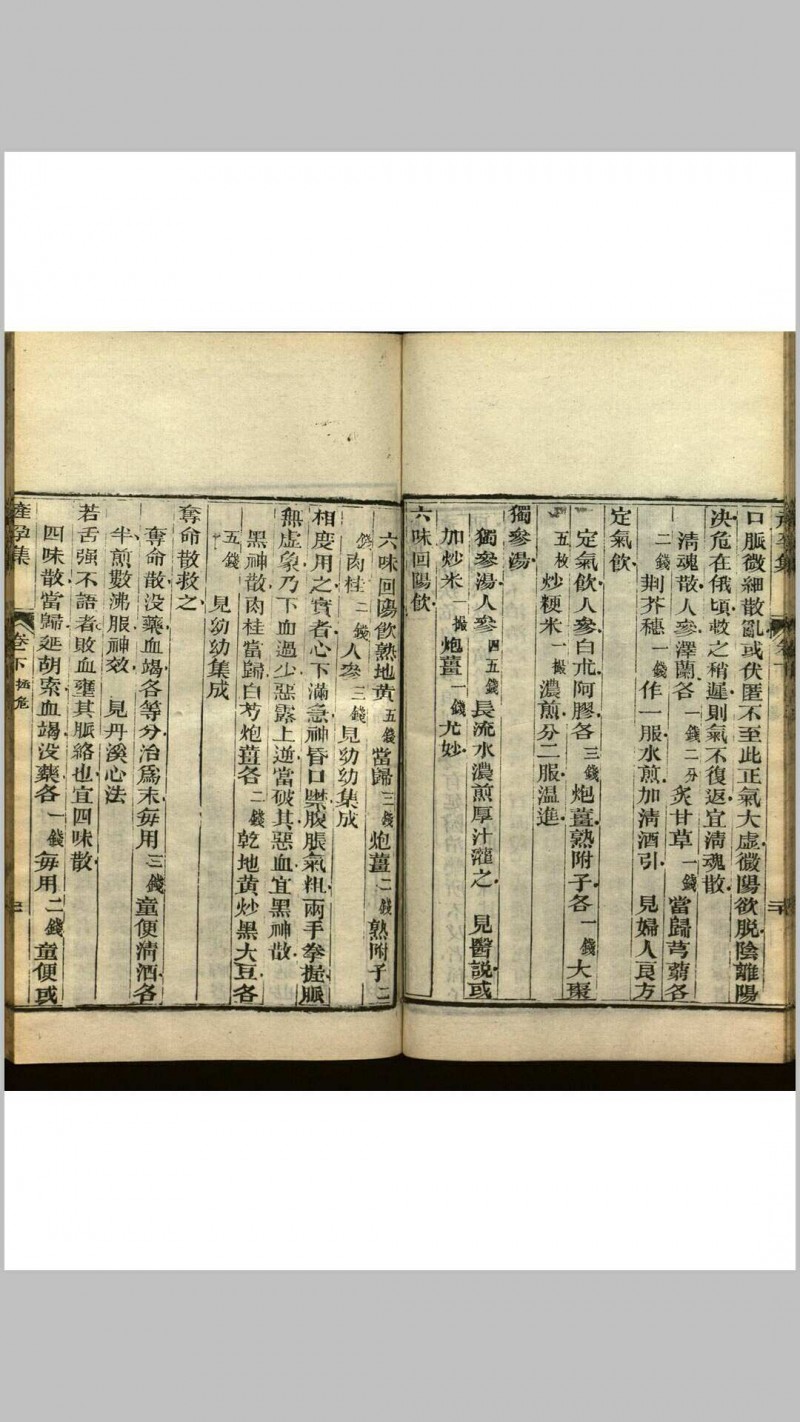 口脈微細散亂或伏匿不至此正氣大虛微陽欲脫陰離陽
决危在俄頃救之稍遲則氣不復返宜清魂散
清魂散人參澤蘭各一錢二分炙甘草一錢當歸芎藭各
二錢荆芥穗一錢作一服水煎加清酒引　見婦人良方
定氣飲
定氣飲人參白朮阿膠各三錢炮薑熟附子各一錢大棗
五枚炒粳米一撮濃煎分二服温進
獨參湯
獨參湯人參四五錢長流水濃煎厚汁灌之　見醫説或
加炒米一撮炮薑一錢尤妙
六味回陽飲
六味回陽飲熟地黃五錢當歸三錢炮薑二錢熟附子二
錢肉桂二錢人參三錢見幼幼集成
相度用之實者心下滿急神昏口噤腹脹氣粗兩手拳握脈
無虛象乃下血過少惡露上逆當破其惡血宜黑神散
黑神散肉桂當歸白芍炮薑各二錢乾地黃炒黑大豆各
五錢　見幼幼集成
奪命散救之
奪命散没藥血竭各等分治爲末每用三錢童便清酒各
半煎數沸服神效　見丹溪心法
若舌强不語者敗血壅其脈絡也宜四味散
四味散當歸延胡索血竭没藥各一錢每用二錢童便或
產孕集
卷下
拯危